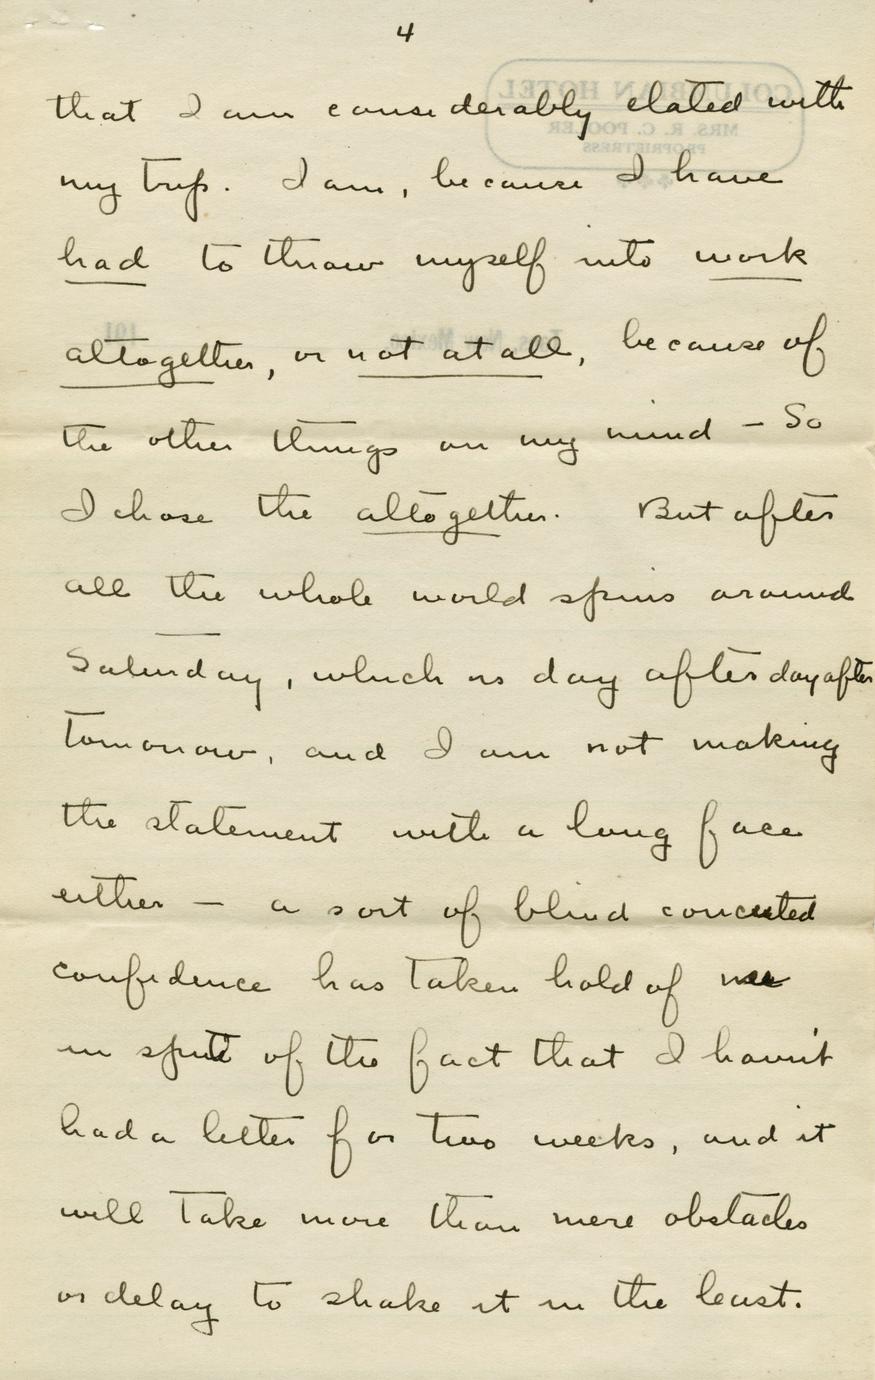 4
COLUMBIAN HOTEL
MRS. R. C. POOLER
PROPRIETRESS
that I am considerably elated with
my trip. I am, because I have
had to throw myself into work
Taos, New Mexico, 191
altogether, or not at all, because of
the other things on my mind – So
I chose the altogether. But after
all the whole world spins around
Saturday, which is day after day after
tomorrow, and I am not making
the statement with a long face
either – a sort of blind conceited
confidence has taken hold of me
in spite of the fact that I havn't
had a letter for two weeks, and it
will take more than mere obstacles
or delay to shake it in the least.